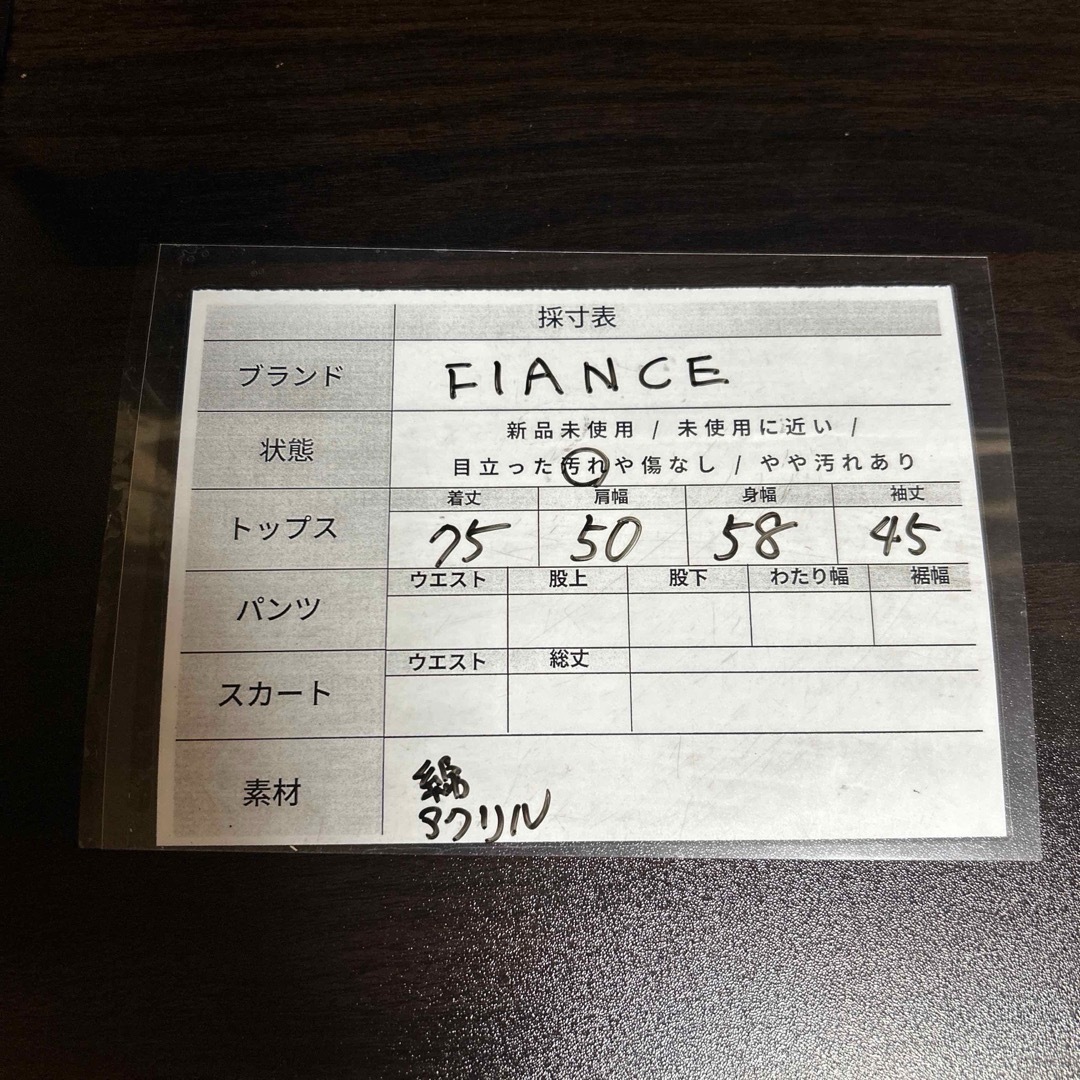 採寸表
ブランド FIANCE
状態 新品未使用 / 未使用に近い /
目立った汚れや傷なし / やや汚れあり
トップス 着丈 肩幅 身幅 袖丈
75 50 58 45
パンツ ウエスト 股上 股下 わたり幅 裾幅
スカート ウエスト 総丈
素材 綿
アクリル